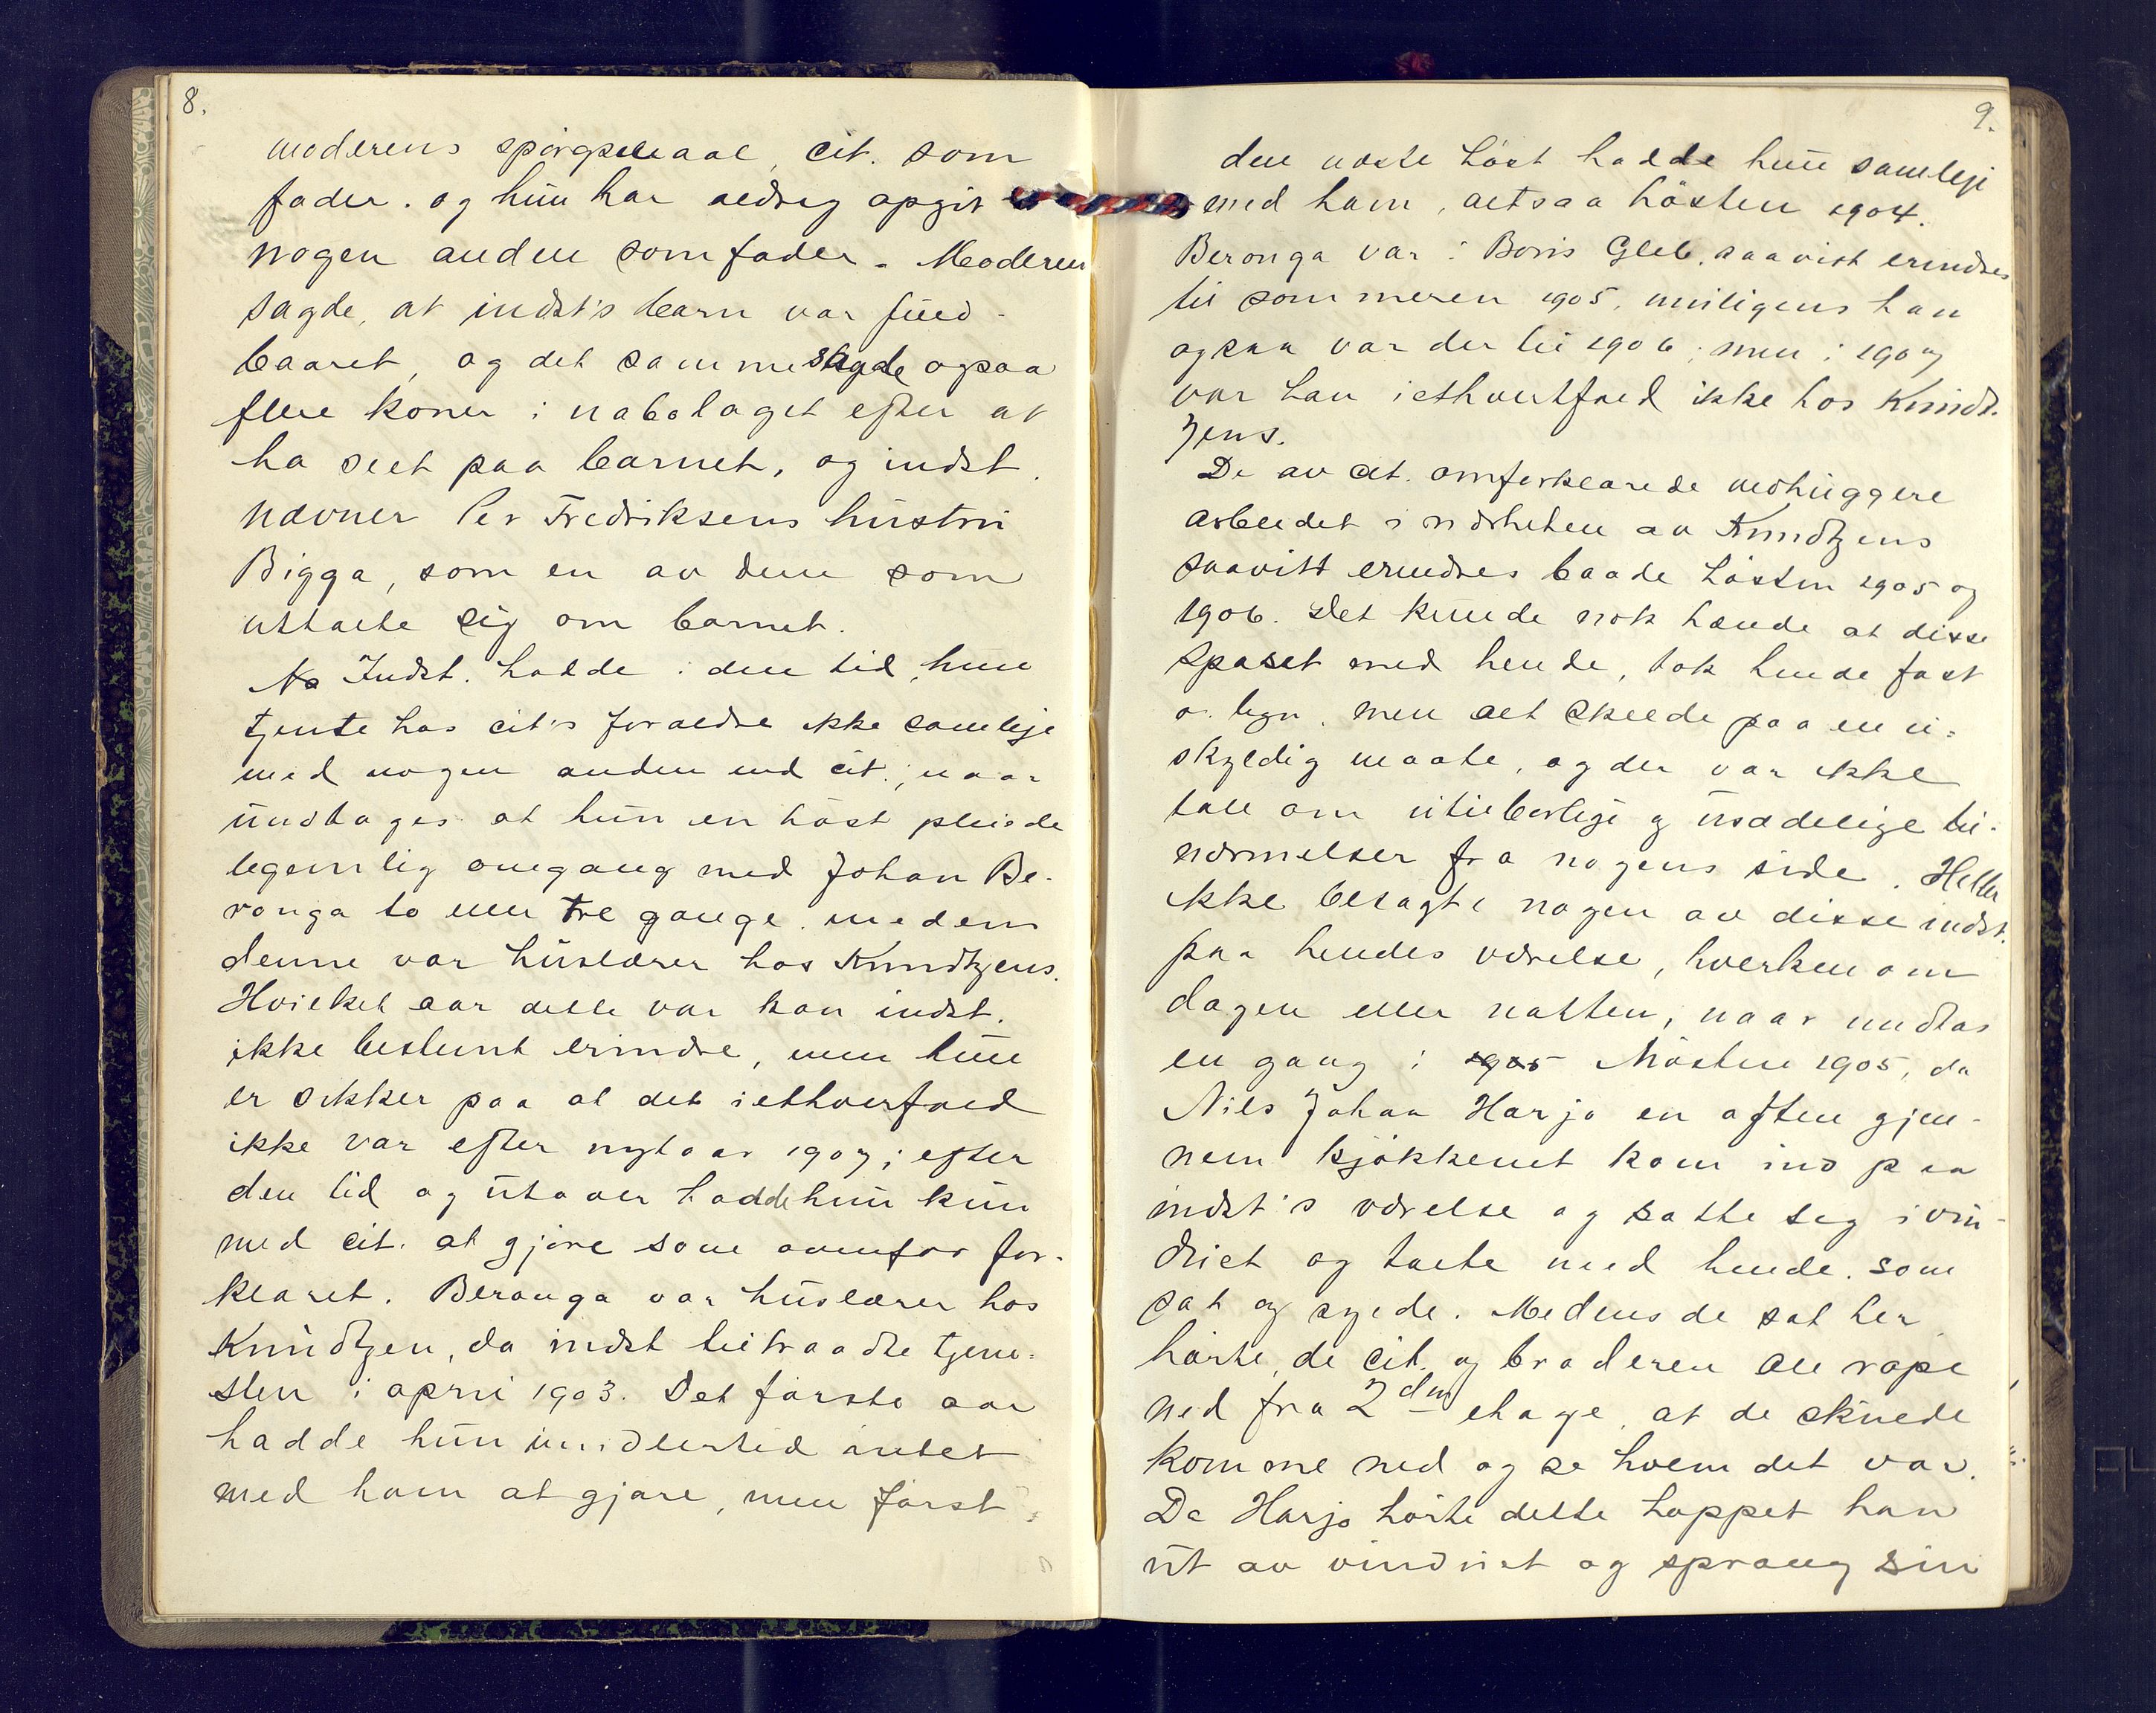 8.
moderens spörgsmaal, cit. som
fader. og hun har aldrig opgit
nogen anden som fader. Moderen
sagde, at indst's barn var fuld-
baaret, og det samme sagde ogsaa
flere koner i nabolaget efter at
ha seet paa barnet, og indst.
nævner Per Fredriksens hustru
Bigga, som en av dem som
uttalte sig om barnet.
Indst. hadde i den tid, hun
tjente hos cit's forældre ikke samleje
med nogen anden end cit.; naar
undtages at hun en höst pleiede
legemlig omgang med Johan Be-
ronga to eller tre gange. medens
denne var huslærer hos Knudtzens.
Hvilket aar dette var kan indst.
ikke bestemt erindre, men hun
er sikker paa at det iethverfald
ikke var efter nytaar 1907; efter
den tid og utover hadde hun kun
med cit. at gjöre som ovenfor for-
klaret. Beronga var huslærer hos
Knudtzen, da indst tiltraadte tjene-
sten i april 1903. Det förste aar
hadde hun imidlertid intet
med ham at gjöre, men först
9.
den næste höst hadde hun samleje
med ham, altsaa hösten 1904.
Beronga var i Boris Gleb, saavidt erindres
til sommeren 1905, muligens han
ogsaa var der til 1906; men i 1907
var han iethvertfald ikke hos Knudt-
zens.
De av cit. omforklarede vedhuggere
arbeidet i nærheten av Knudtzens
saavitt erindres baade hösten 1905 og
1906. Det kunde nok hænde at disse
spaset med hende, tok hende fast
o. lign. men alt skeede paa en u-
skyldig maate, og der var ikke
tale om utilbørlige og usædelige til-
nærmelser fra nogens side. Heller
ikke besøgte nogen av disse indst.
paa hendes værelse, hverken om
dagen eller natten, naar undtas
en gang i 1905 hösten 1905, da
Nils Johan Harjo en aften gjen-
nem kjökkenet kom ind paa
indst's værelse og satte seg i vin-
duet og talte med hende. som
sat og syede. Medens de sat her
hörte, de cit. og broderen Ole rope
ned fra 2den etage, at de skulde
komme ned og se hvem det var.
Da Harjo hörte dette hoppet han
ut av vinduet og sprang sin